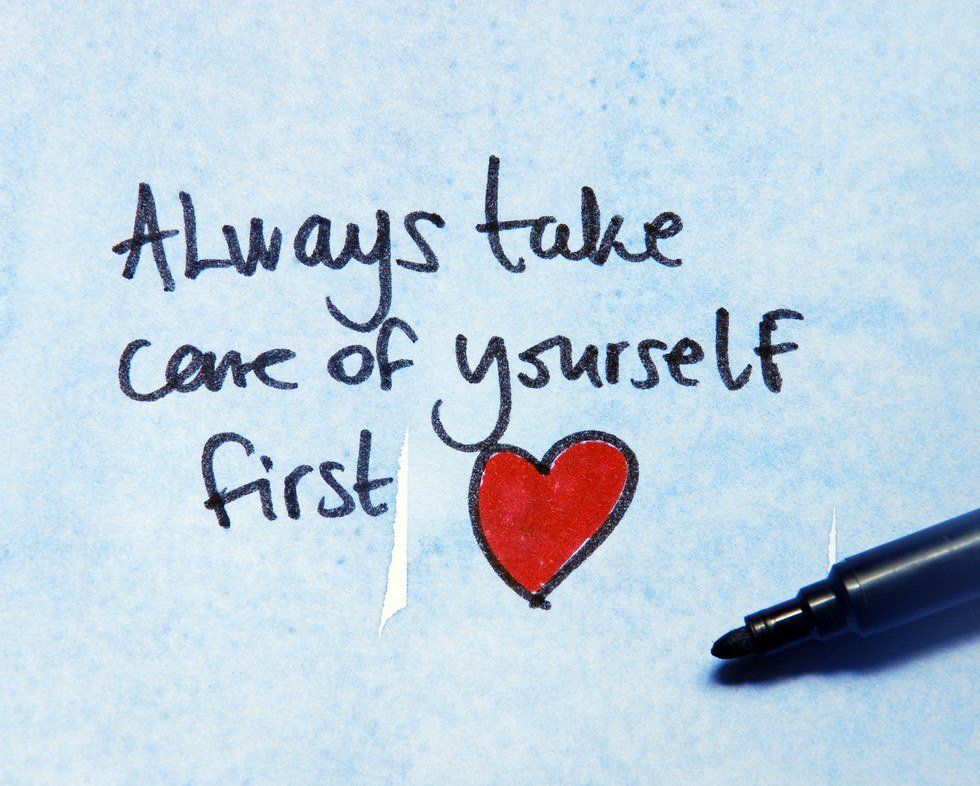 Always take
care of yourself
first